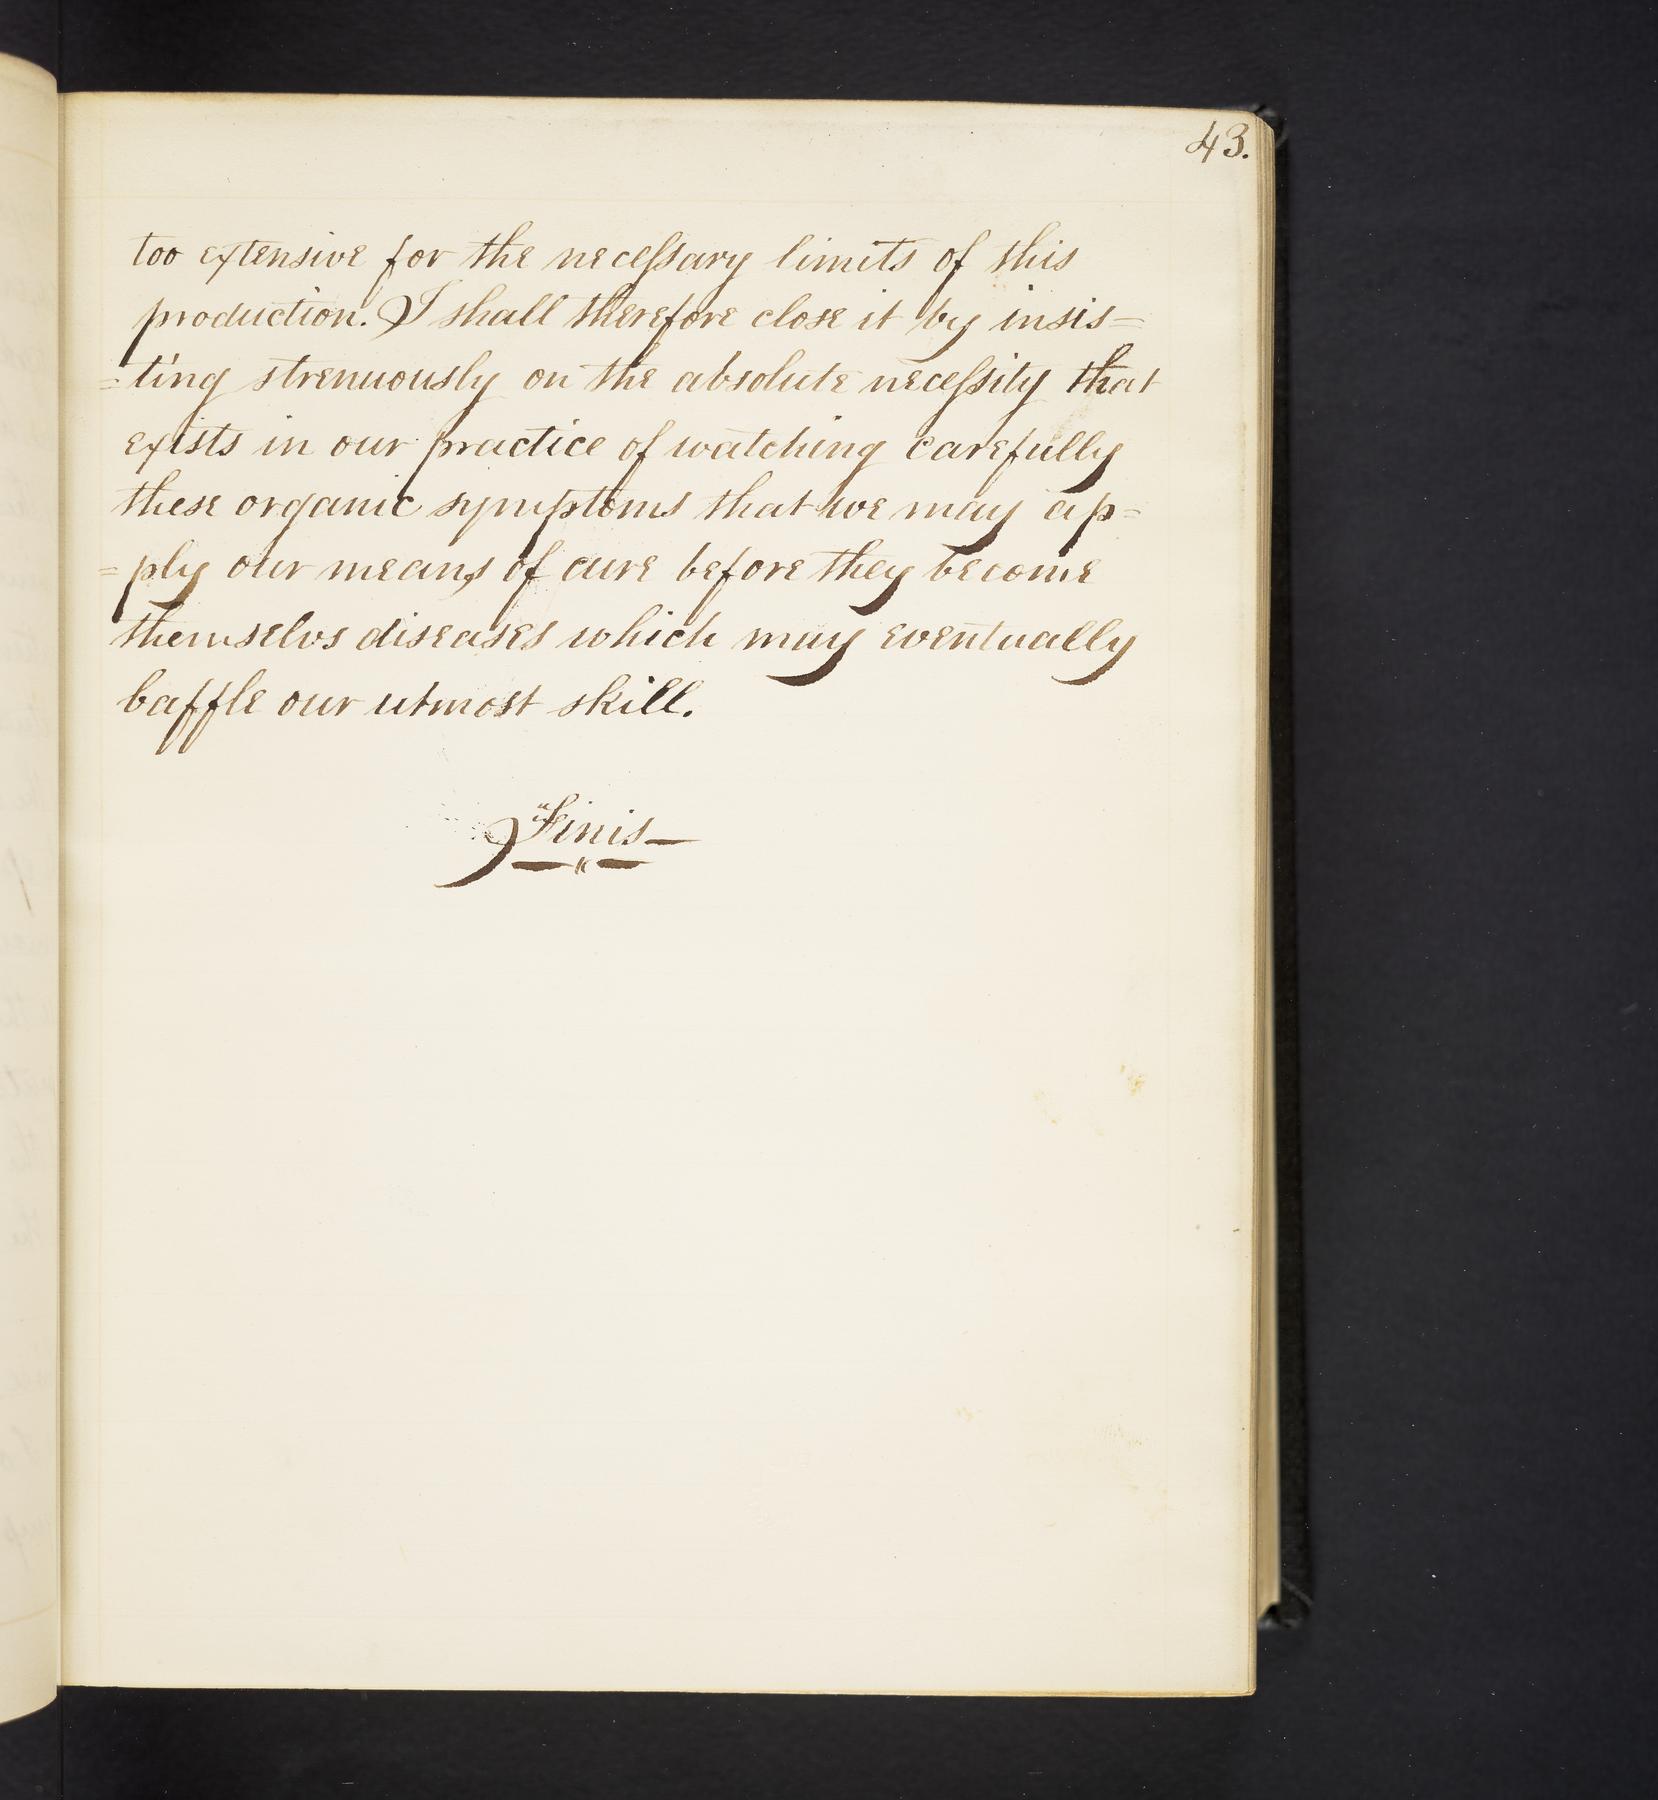 43.
too extensive for the neceſsary limits of this
production. I shall therefore close it by insis=
=ting strenuously on the absolute neceſsity that
exists in our practice of watching carefully
these organic symptoms that we may ap=
=ply our means of cure before they become
themselvs diseases which may eventually
baffle our utmost skill.
"Finis—